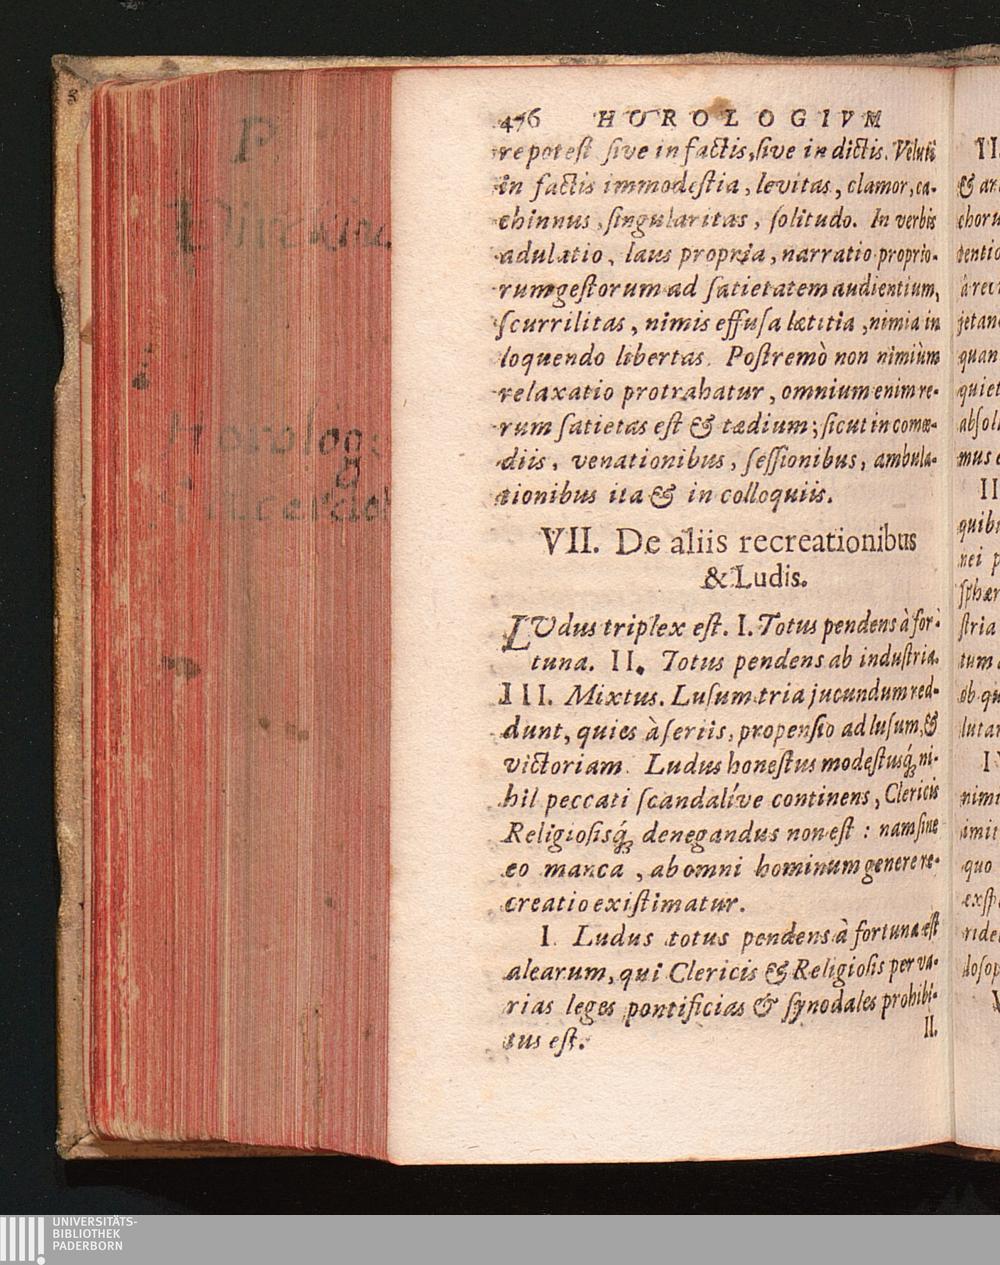 476 HOROLOGIVM
re potest sive in factis, sive in dictis. Veluti
in factis immodestia, levitas, clamor, ca-
chinnus, singularitas, solitudo. In verbis
adulatio, laus propria, narratio proprio-
rum gestorum ad satietatem audientium,
scurrilitas, nimis effusa lætitia, nimia in
loquendo libertas. Postremò non nimiùm
relaxatio protrahatur, omnium enim re-
rum satietas est & tædium; sicut in comœ-
diis, venationibus, sessionibus, ambula-
tionibus ita & in colloquiis.
VII. De aliis recreationibus
& Ludis.
LUdus triplex est. I. Totus pendens à for-
tuna. II. Totus pendens ab industria.
III. Mixtus. Lusum tria jucundum red-
dunt, quies à seriis, propensio ad lusum, &
victoriam. Ludus honestus modestusq́; ni-
hil peccati scandalíve continens, Clericis
Religiosisq́; denegandus non est: nam sine
eo manca, ab omni hominum genere re-
creatio existimatur.
I. Ludus totus pendens à fortuna est
alearum, qui Clericis & Religiosis per va-
rias leges pontificias & synodales prohibi-
tus est.
II.
P.
Horolog
II
& ar
choru
dentio
à rect
jetan
quan
quiet
absol
mus
II
quibu
nei p
sphær
stria
tum
ob qu
lutar
nimi
imit
quo
exsp
ride
dosop
V
UNIVERSITÄTS-
BIBLIOTHEK
PADERBORN